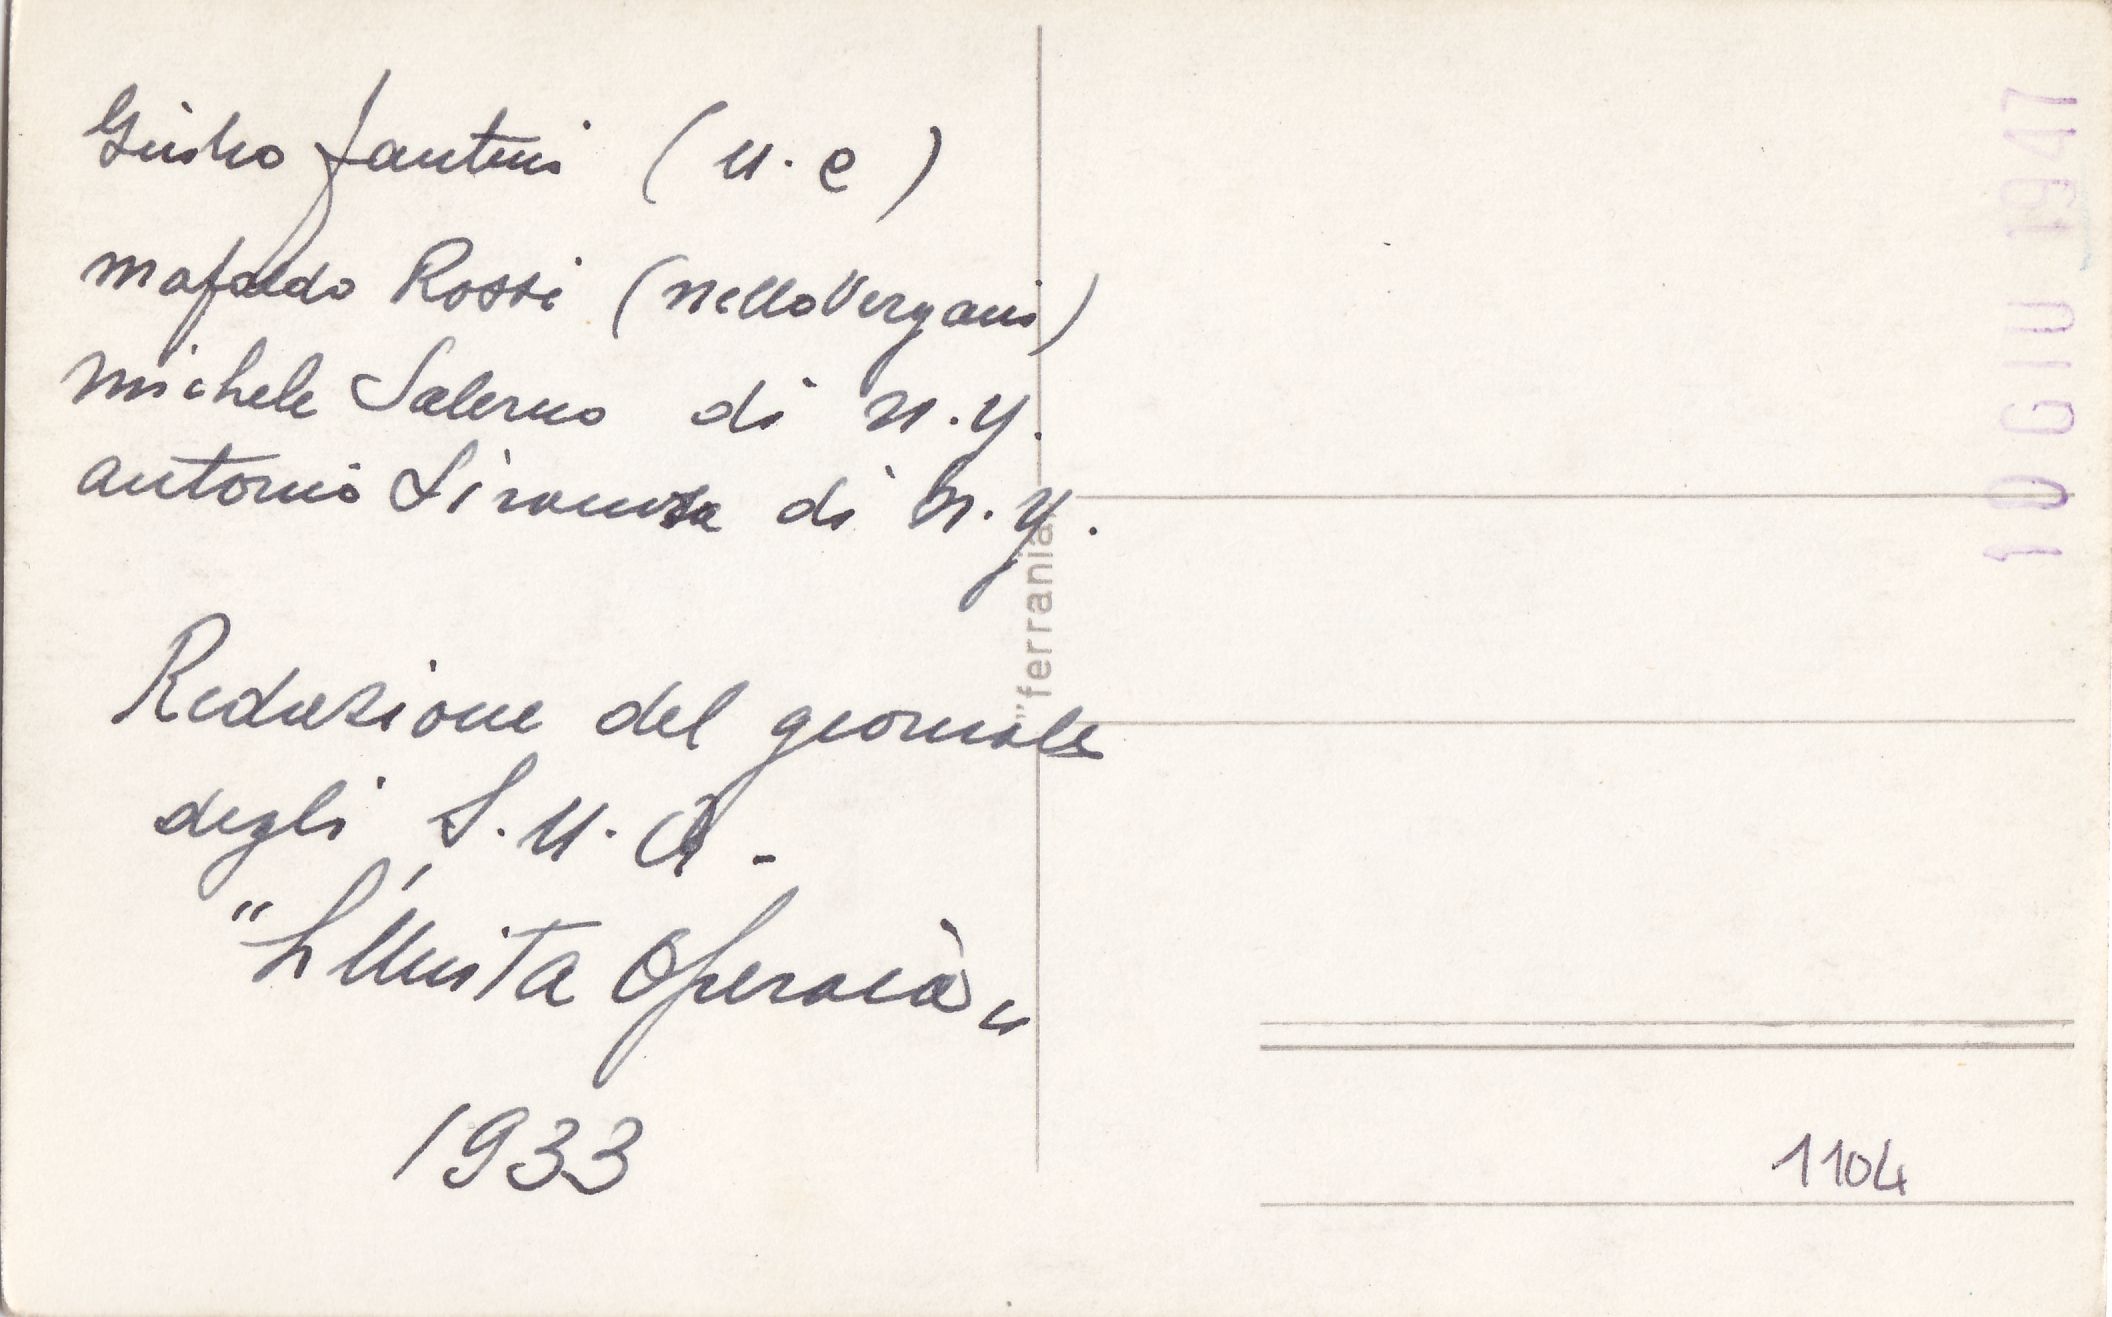 Giusto Fantini (U. C)
Mafaldo Rossi (Nello Vergani)
Michele Salerno di N.Y.
Antonio di N.Y.
Redazione del giornale
degli S.U.A -
"L'Unità Operaia"
1933
"ferrania"
10 GIU 1947
1104